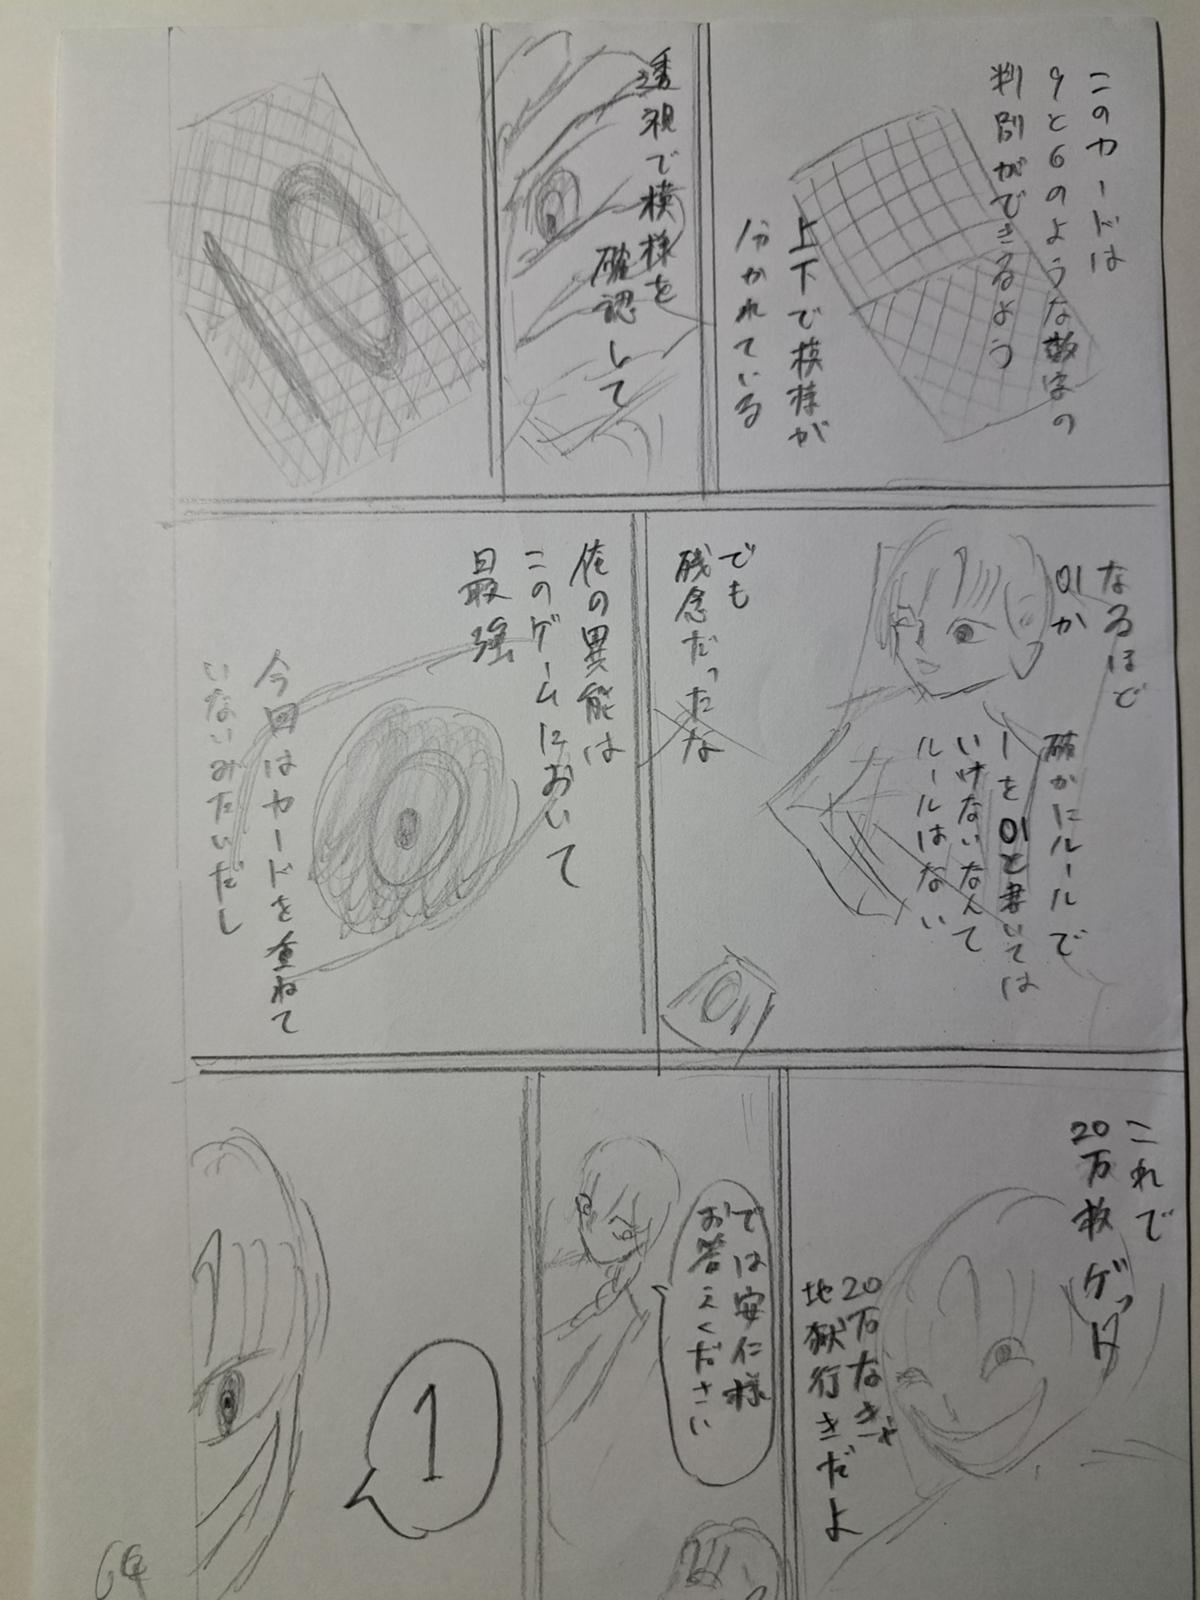 このカードは
9と6のような数字の
判別ができるよう
上下で模様が
分かれている
透視で模様を
確認して
10
なるほど
01か
確かにルールで
1を01と書いては
いけないなんて
ルールはない
01
でも
残念だったな
俺の異能は
このゲームにおいて
最強
今回はカードを重ねて
いないみたいだし
これで
20万枚ゲット
20万なきゃ
地獄行きだよ
では安仁様
お答えください
1